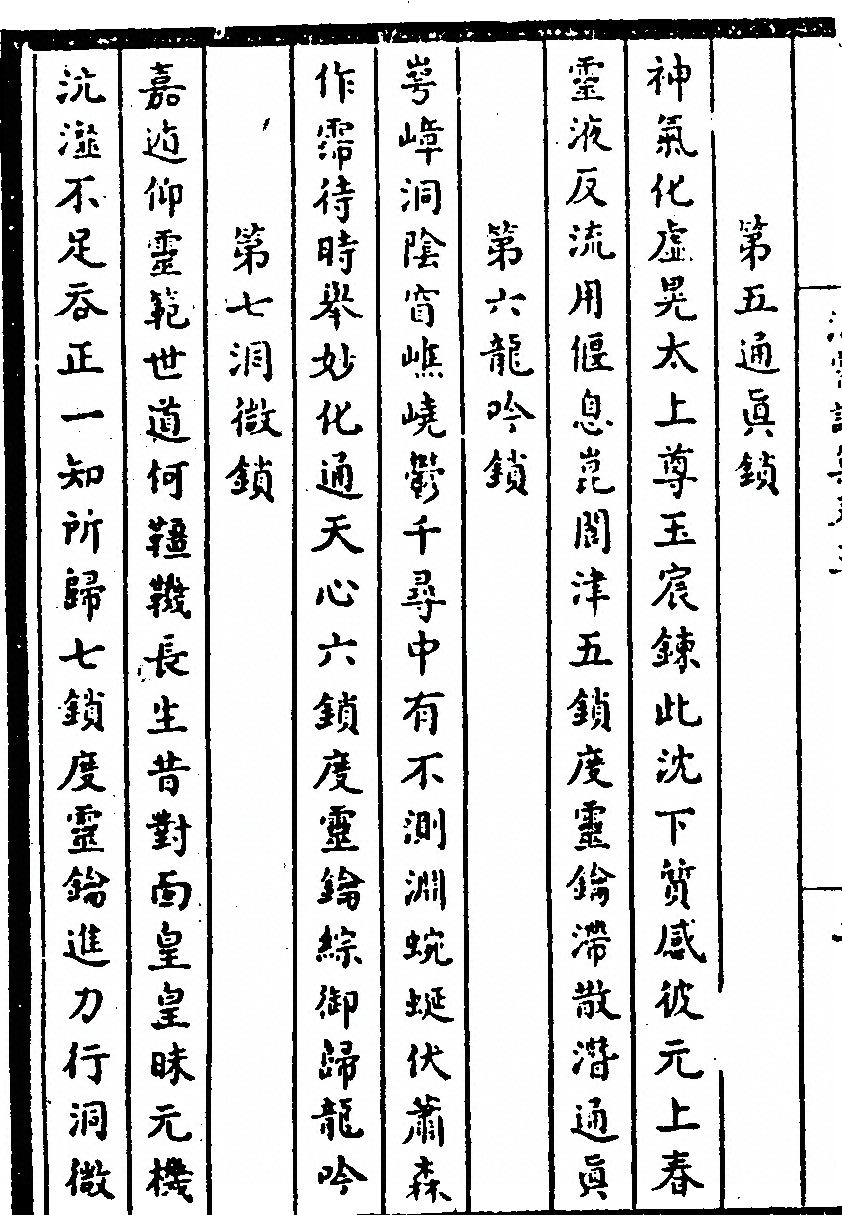 第五通眞鎖
神氣化虛晃太上尊玉宸鍊此沈下質感彼元上春
靈液反流用偃息崑閬津五鎖度靈鑰滯散潛通眞
第六龍吟鎖
崿嶂洞陰窅嶕嶢鬱千尋中有不測淵蜿蜒伏蕭森
作霈待時舉妙化通天心六鎖度靈鑰綜御歸龍吟
第七洞微鎖
嘉遁仰靈範世道何韁鞿長生昔對面皇皇昧元機
沆瀣不足吞正一知所歸七鎖度靈鑰進力行洞微